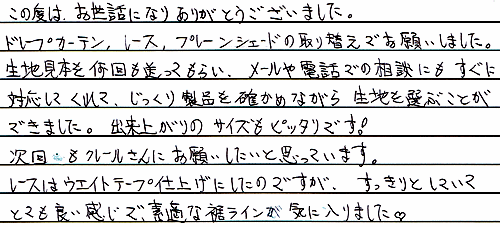 この度は、お世話になりありがとうございました。
ドレープカーテン，レース，プレーンシェードの取り替えでお願いしました。
生地見本を何回も送ってもらい、メールや電話での相談にもすぐに
対応してくれて、じっくり製品を確かめながら生地を選ぶことが
できました。出来上がりのサイズもピッタリです!
次回もクレールさんにお願いしたいと思っています。
レースはウエイトテープ仕上げにしたのですが、すっきりとしていて
とても良い感じで、素適な裾ラインが気に入りました♡